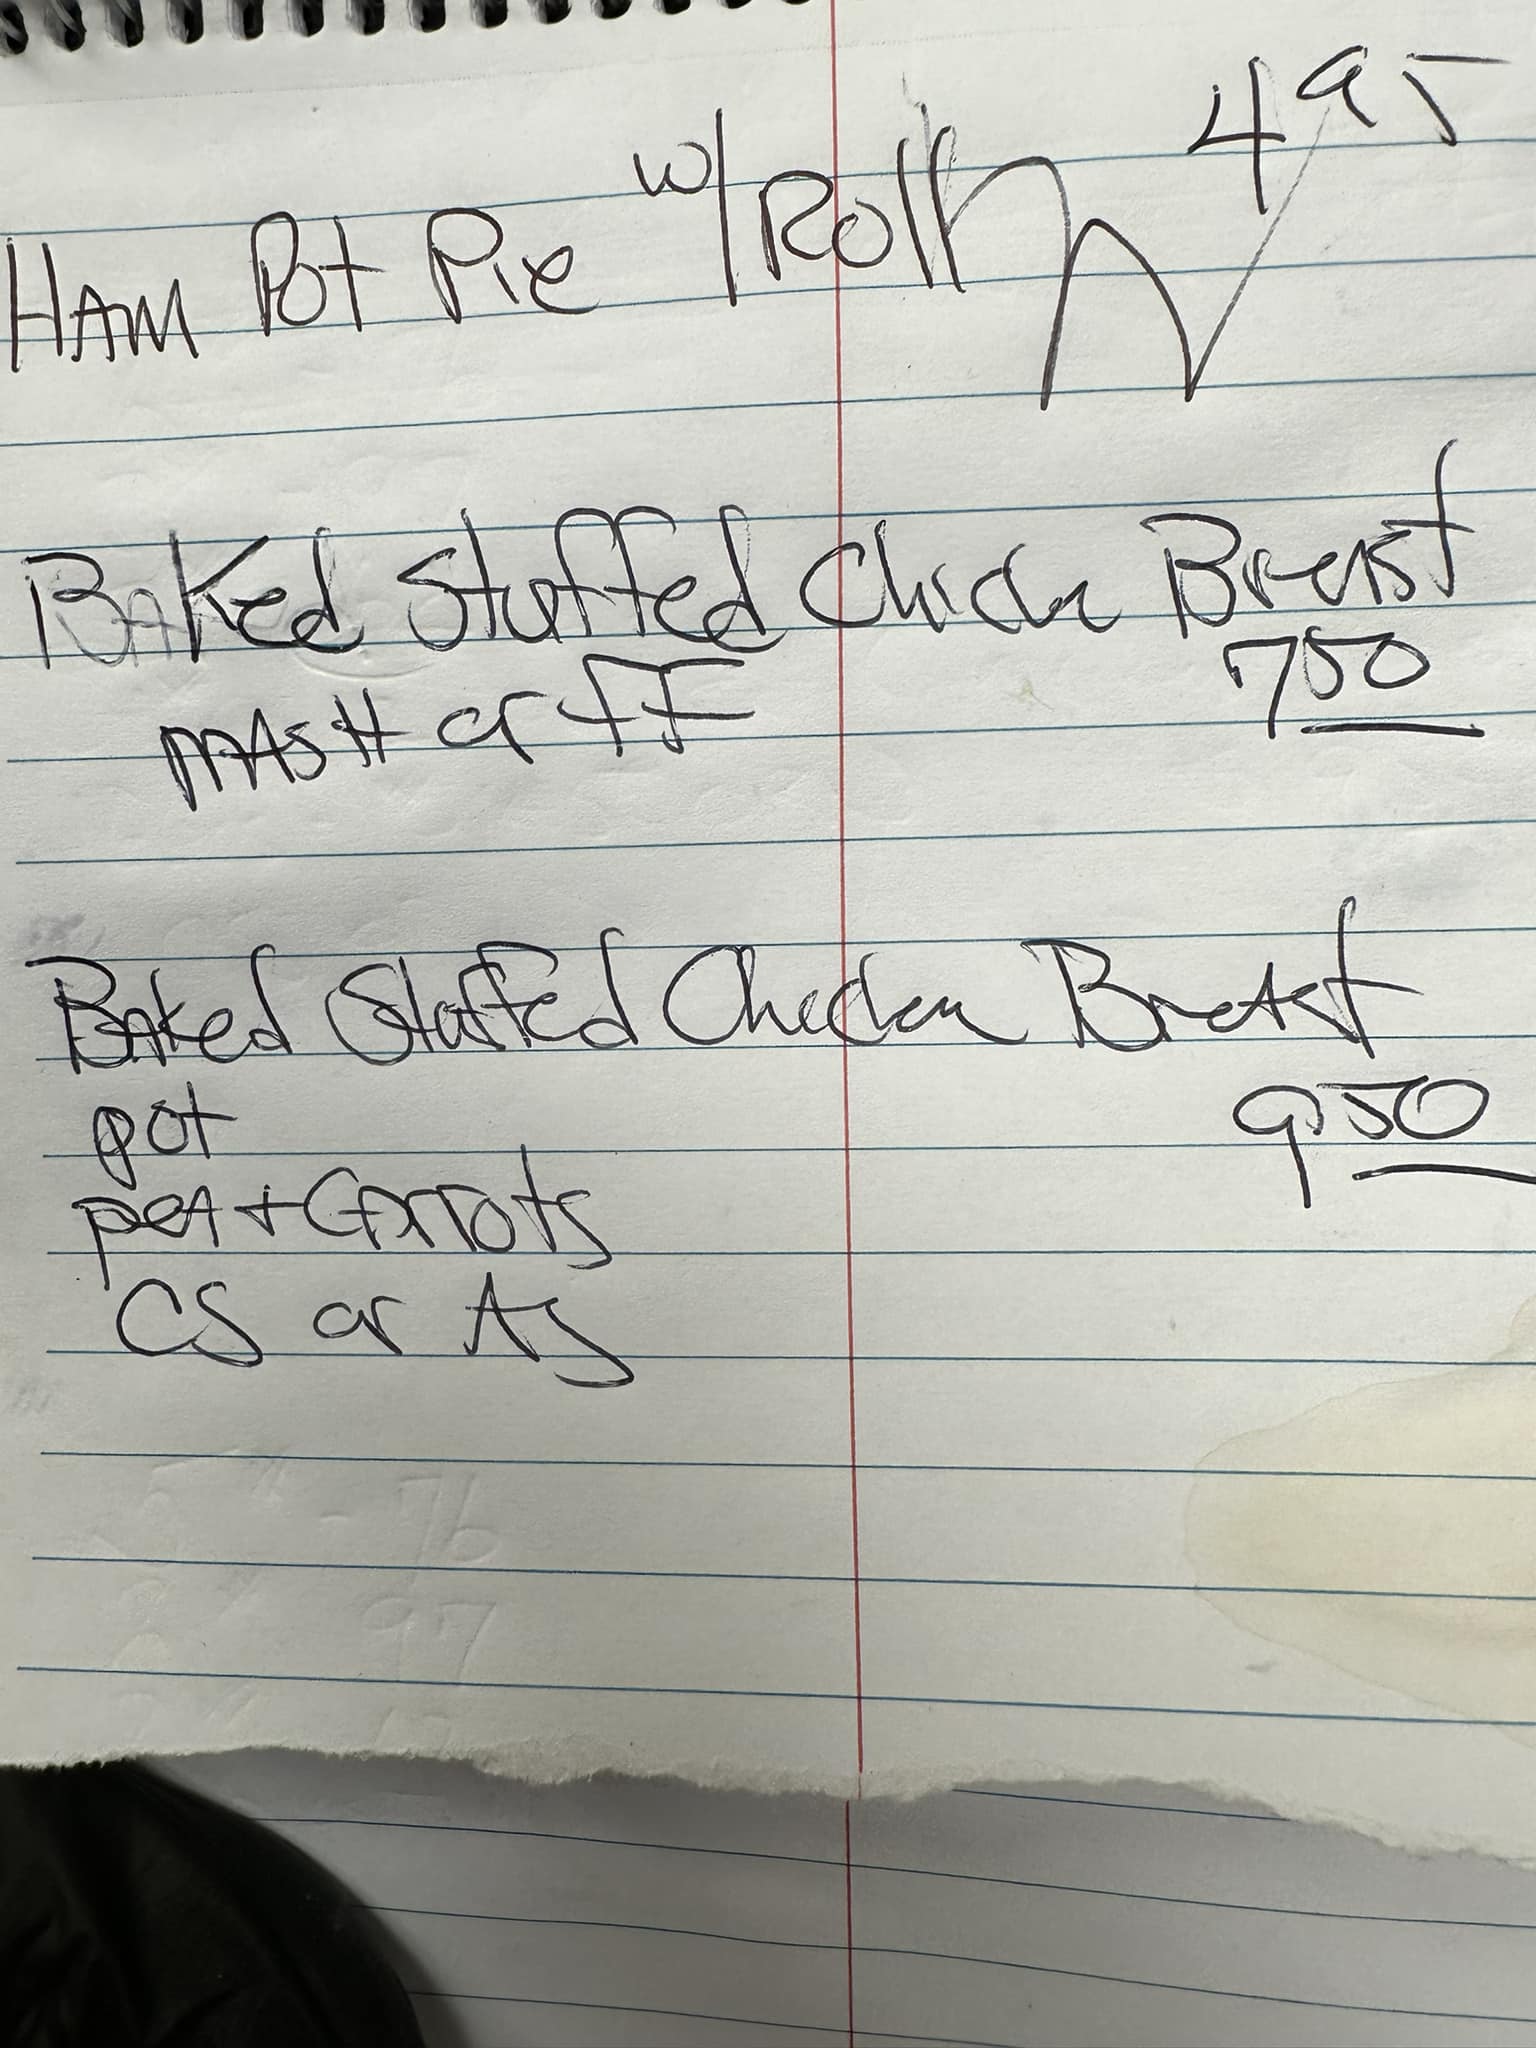 HAM Pot Pie w/ Roll 495
Baked Stuffed Chicken Breast
MASH or FF 750
Baked Stuffed Chicken Breast
pot 950
peA + Carrots
CS or AS
- 76
97